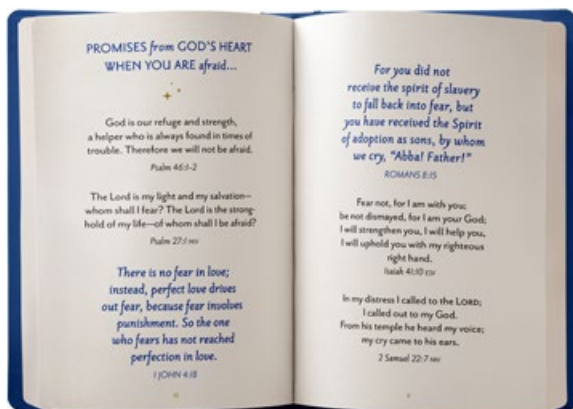 PROMISES from GOD'S HEART
WHEN YOU ARE afraid...
God is our refuge and strength,
a helper who is always found in times of
trouble. Therefore we will not be afraid.
Psalm 46:1-2
The Lord is my light and my salvation—
whom shall I fear? The Lord is the strong-
hold of my life—of whom shall I be afraid?
Psalm 27:1 NIV
There is no fear in love;
instead, perfect love drives
out fear, because fear involves
punishment. So the one
who fears has not reached
perfection in love.
1 JOHN 4:18
For you did not
receive the spirit of slavery
to fall back into fear, but
you have received the Spirit
of adoption as sons, by whom
we cry, "Abba! Father!"
ROMANS 8:15
Fear not, for I am with you;
be not dismayed, for I am your God;
I will strengthen you, I will help you,
I will uphold you with my righteous
right hand.
Isaiah 41:10 ESV
In my distress I called to the LORD;
I called out to my God.
From his temple he heard my voice;
my cry came to his ears.
2 Samuel 22:7 NIV